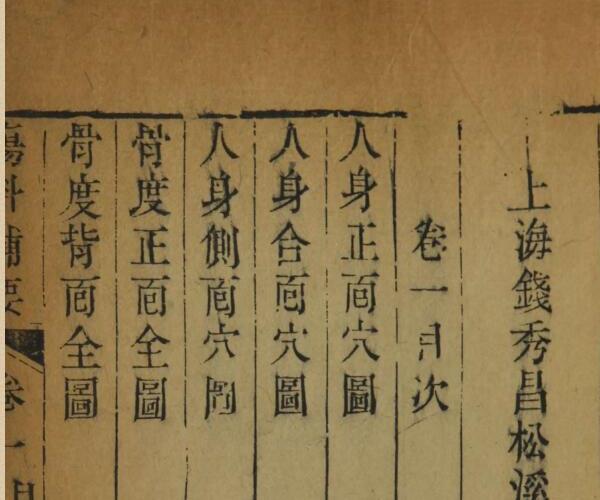 上海錢秀昌松溪
卷一目次
人身正面穴圖
人身合面穴圖
人身側面穴圖
骨度正面全圖
骨度背面全圖
傷科補要 卷一 目